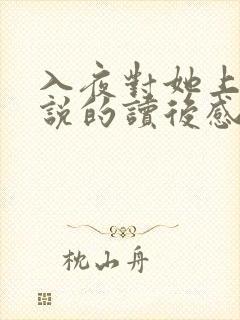 入夜對她上
說的讀後感
枕山舟